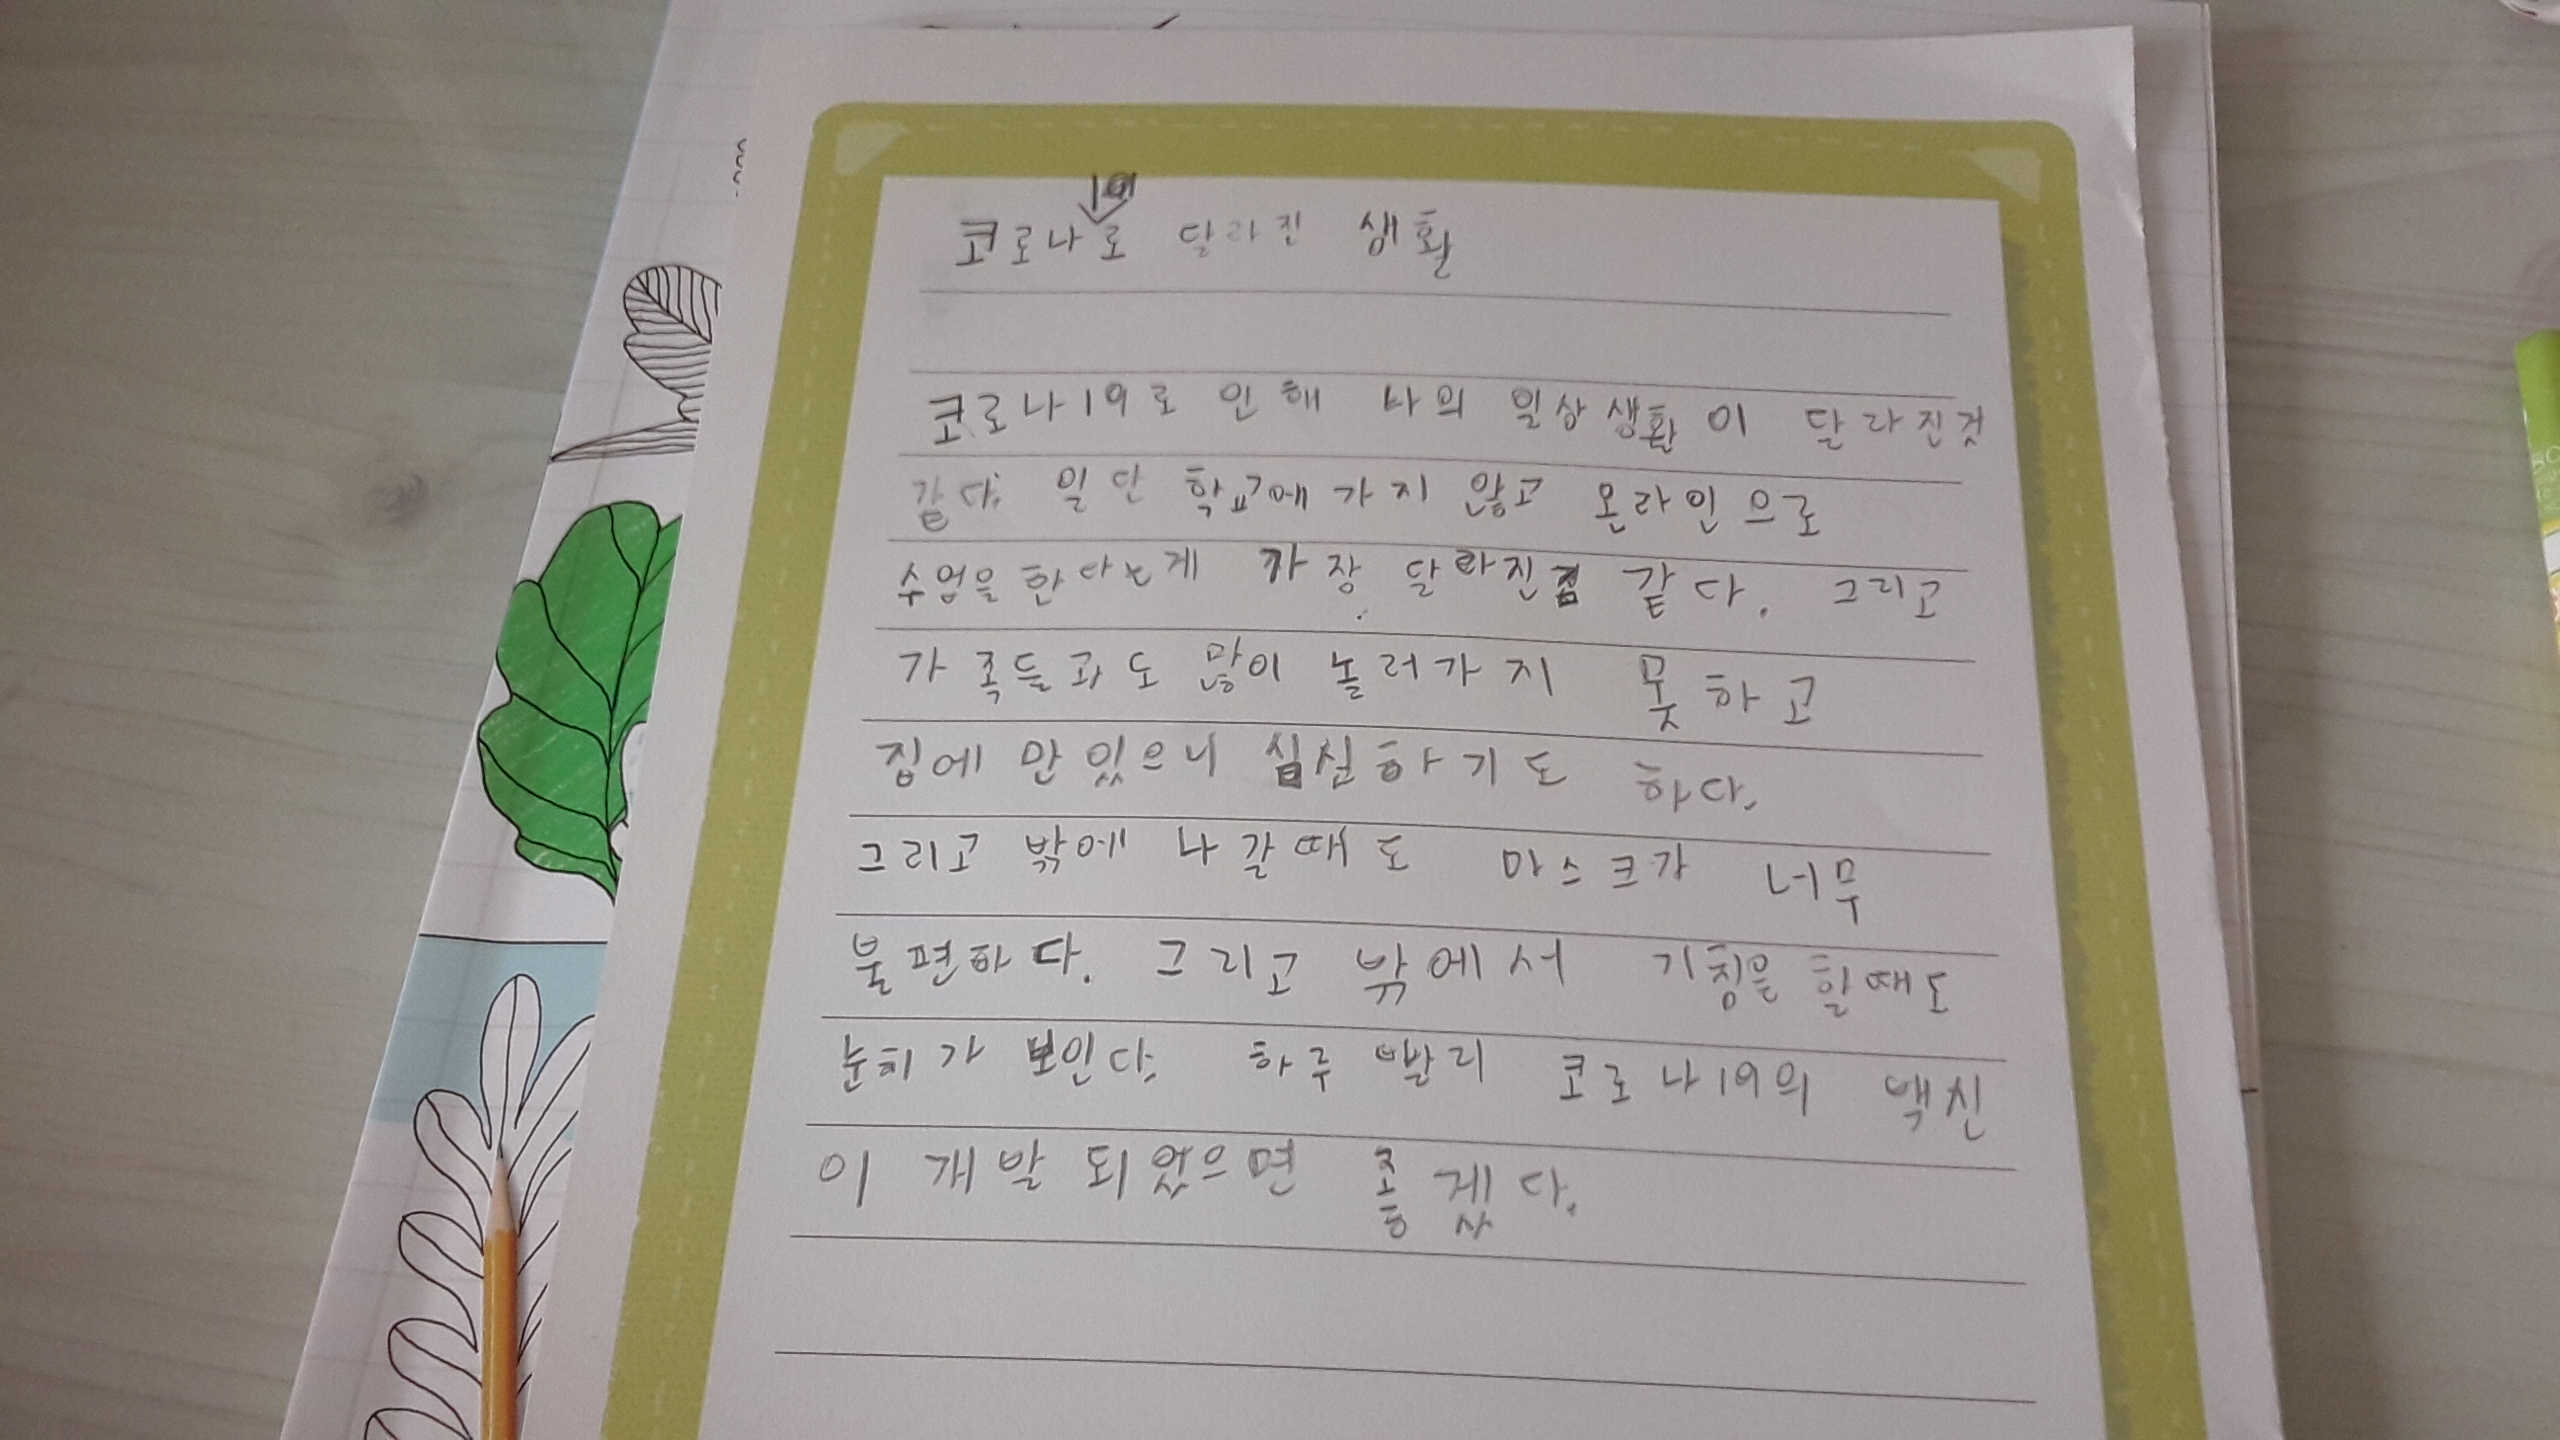 코로나19로 달라진 생활
코로나19로 인해 나의 일상생활이 달라진것
같다. 일단 학교에 가지 않고 온라인으로
수업을 한다는게 가장 달라진점 같다. 그리고
가족들과도 많이 놀러가지 못하고
집에 만있으니 심심하기도 하다.
그리고 밖에 나갈때도 마스크가 너무
불편하다. 그리고 밖에서 기침을 할때도
눈치가 보인다. 하루 빨리 코로나19의 백신
이 개발 되었으면 좋겠다.